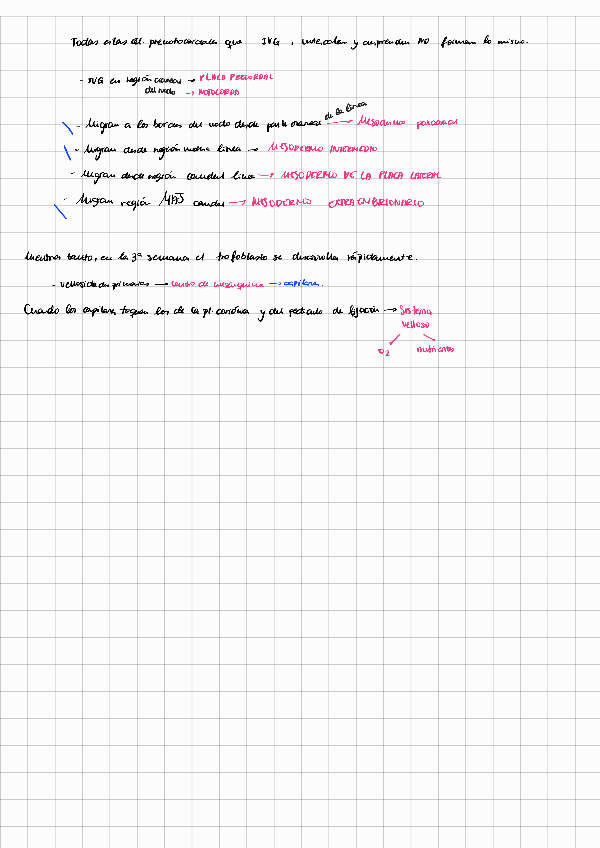 Todas estas cél. prenotocordales que INVG, intercalan y desprenden NO forman lo mismo.
- INVG en región craneal → PLACA PRECORDAL
del nodo → NOTOCORDA
- Migran a los bordes del nodo desde parte craneal de la línea → MESODERMO PARAXIAL
- Migran desde región media línea → MESODERMO INTERMEDIO
- Migran desde región caudal línea → MESODERMO DE LA PLACA LATERAL
- Migran región MÁS caudal → MESODERMO EXTRAEMBRIONARIO
Mientras tanto, en la 3ª semana el trofoblasto se desarrolla rápidamente.
- vellosidades primarias → centro de mesénquima → capilares.
Cuando los capilares toquen los de la pl. coriónica y del pedículo de fijación → Sistema
velloso
O2 nutrientes